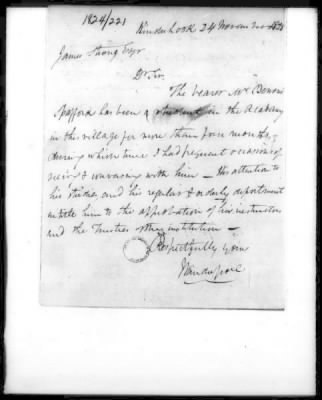 1824/221
Kinderhook 24 Novem
James Strong Esqr
Dr Sir,
The bearer Mr
Spafford has been a student in the Academy
in this village for more than four months,
during which time I had frequent occasions of
seeing & conversing with him — His attention to
his studies and his regular & orderly deportment
entitle him to the approbation of his instructors
and the Trustees of the institution —
Respectfully yours
J Vanderpoel